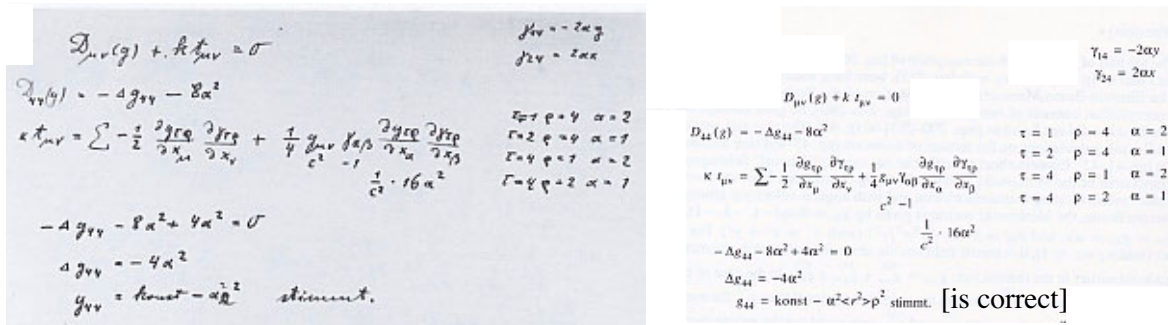 γ₁₄ = -2αy
γ₂₄ = 2αx
D_μν(g) + k t_μν = 0
D₄₄(g) = -Δg₄₄ - 8α²
κ t_μν = ∑ -1/2 ∂g_τρ/∂x_μ ∂γ_τρ/∂x_ν + 1/4 g_μν γ_αβ ∂g_τρ/∂x_α ∂γ_τρ/∂x_β
c² -1
1/c² · 16α²
τ=1 ρ=4 α=2
τ=2 ρ=4 α=1
τ=4 ρ=1 α=2
τ=4 ρ=2 α=1
-Δg₄₄ - 8α² + 4α² = 0
Δg₄₄ = -4α²
g₄₄ = konst - α² ρ² stimmt.
γ₁₄ = -2αy
γ₂₄ = 2αx
D_μν(g) + k t_μν = 0
D₄₄(g) = -Δg₄₄ - 8α²
κ t_μν = ∑ -1/2 ∂g_τρ/∂x_μ ∂γ_τρ/∂x_ν + 1/4 g_μν γ_αβ ∂g_τρ/∂x_α ∂γ_τρ/∂x_β
c² -1
1/c² · 16α²
τ = 1 ρ = 4 α = 2
τ = 2 ρ = 4 α = 1
τ = 4 ρ = 1 α = 2
τ = 4 ρ = 2 α = 1
-Δg₄₄ - 8α² + 4α² = 0
Δg₄₄ = -4α²
g₄₄ = konst - α²<r²>ρ² stimmt. [is correct]